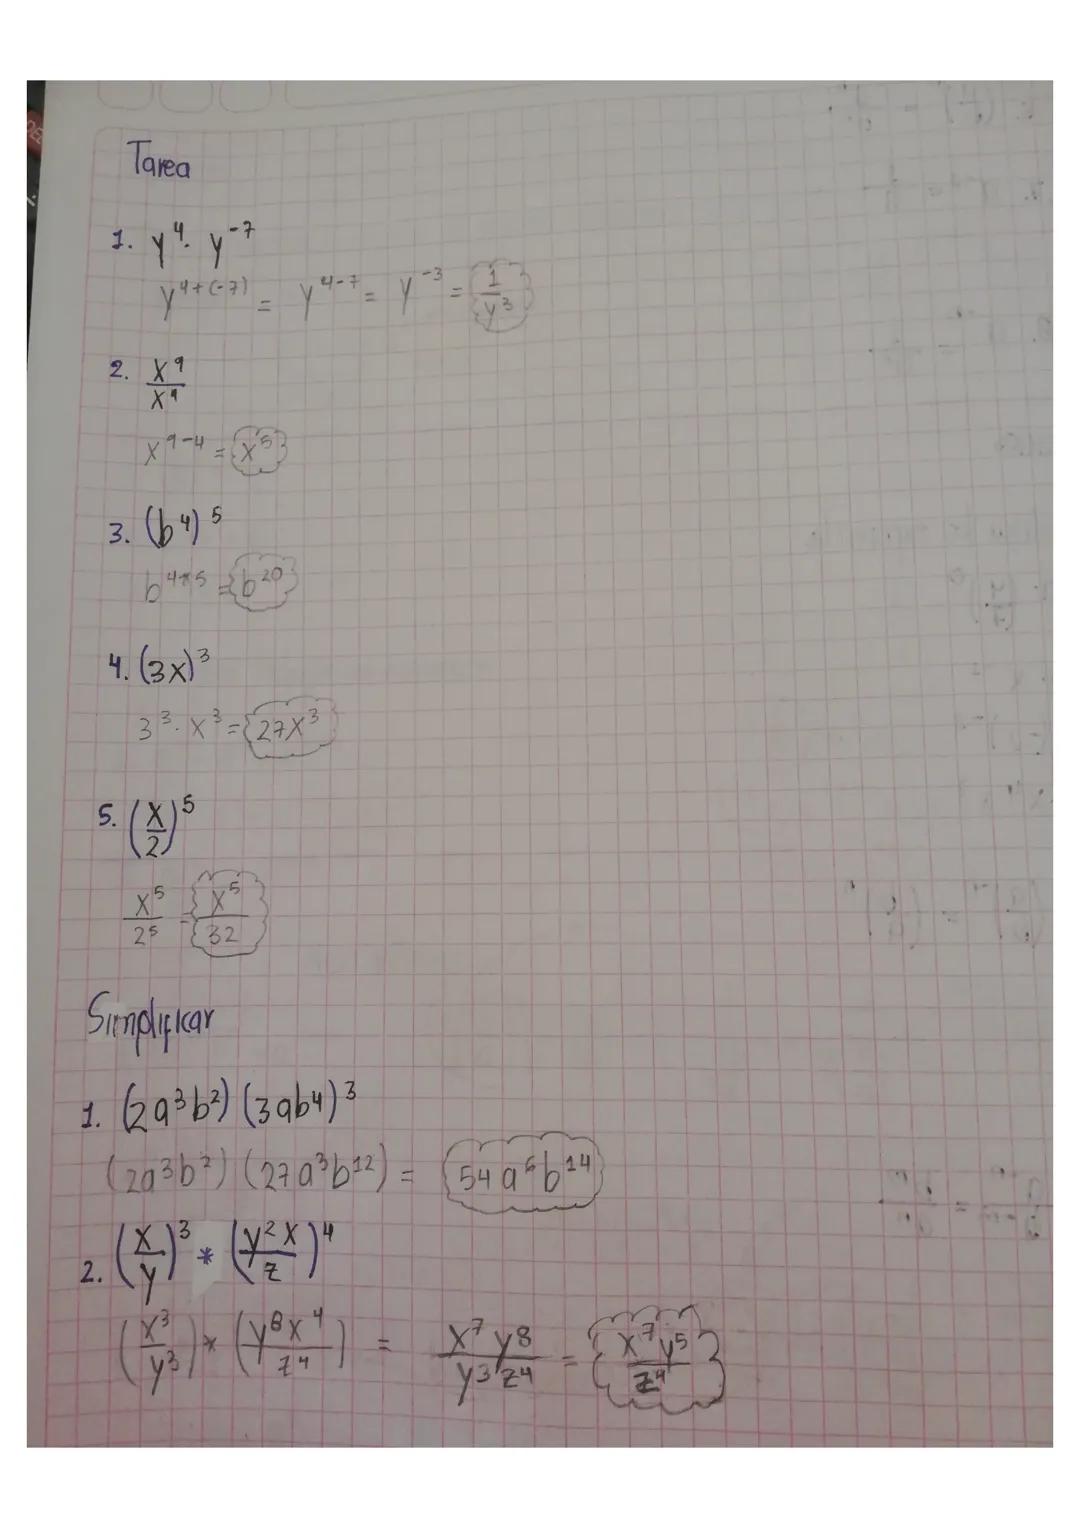 Tarea
1. y⁴ · y⁻⁷
y⁴⁺⁽⁻⁷⁾ = y⁴⁻⁷ = y⁻³ = 1/y³
2. x⁹/x⁴
x⁹⁻⁴ = x⁵
3. (b⁴)⁵
b⁴*⁵ = b²⁰
4. (3x)³
3³ · x³ = 27x³
5. (x/2)⁵
x⁵/2⁵ = x⁵/32
Simplificar
1. (2a³b²) (3ab⁴)³
(2a³b²) (27a³b¹²) = 54a⁶b¹⁴
2. (x/y)³ * (y²x/z)⁴
(x³/y³) * (y⁸x⁴/z⁴) = x⁷y⁸/y³z⁴ = x⁷y⁵/z⁴